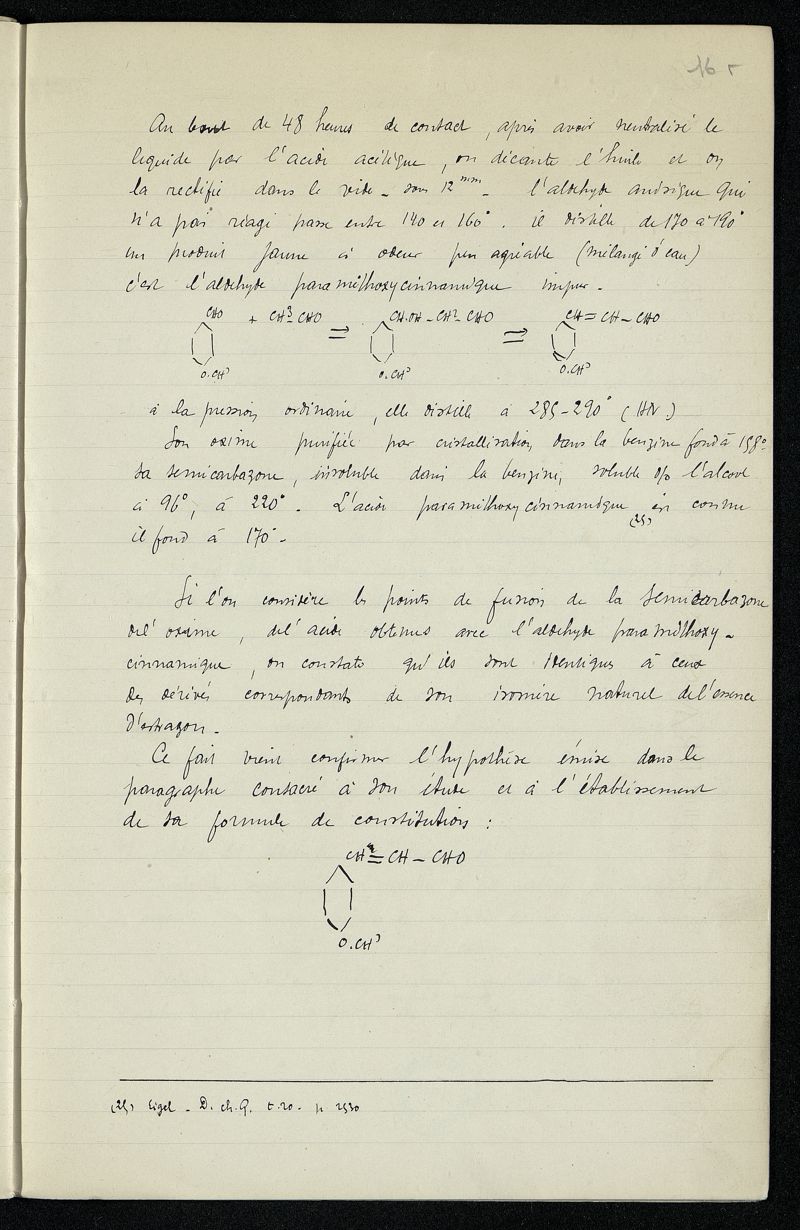 16 r
Au bout de 48 heures de contact, après avoir neutralisé le
liquide par l'acide acétique, on décante l'huile et on
la rectifie dans le vide - sous 12 mm - l'aldehyde anisique qui
n'a pas réagi passe entre 140 et 160°. il distille de 170 à 190°
un produit jaune à odeur peu agréable (mélangé d'eau)
c'est l'aldehyde paraméthoxycinnamique impur -
CHO + CH³-CHO ⇒ CH.OH-CH²-CHO ⇒ CH=CH-CHO
O.CH³ O.CH³ O.CH³
à la pression ordinaire, elle distille à 285-290° (HN)
Son oxime purifiée par cristallisation dans la benzine fond à 158°
sa semicarbazone, insoluble dans la benzine, soluble l'alcool
à 96°, à 220° - L'acide paraméthoxycinnamique (25) est connu
il fond à 170° -
Si l'on considère les points de fusion de la semicarbazone
de l'oxime, de l'acide obtenus avec l'aldehyde paraméthoxy-
cinnamique, on constate qu'ils sont identiques à ceux
des dérivés correspondants de son isomère naturel de l'essence
d'estragon -
Ce fait vient confirmer l'hypothèse émise dans le
paragraphe consacré à son étude et à l'établissement
de sa formule de constitution :
CH=CH-CHO
O.CH³
(25) Eigel - D. ch. G. t. 20 - p 2530